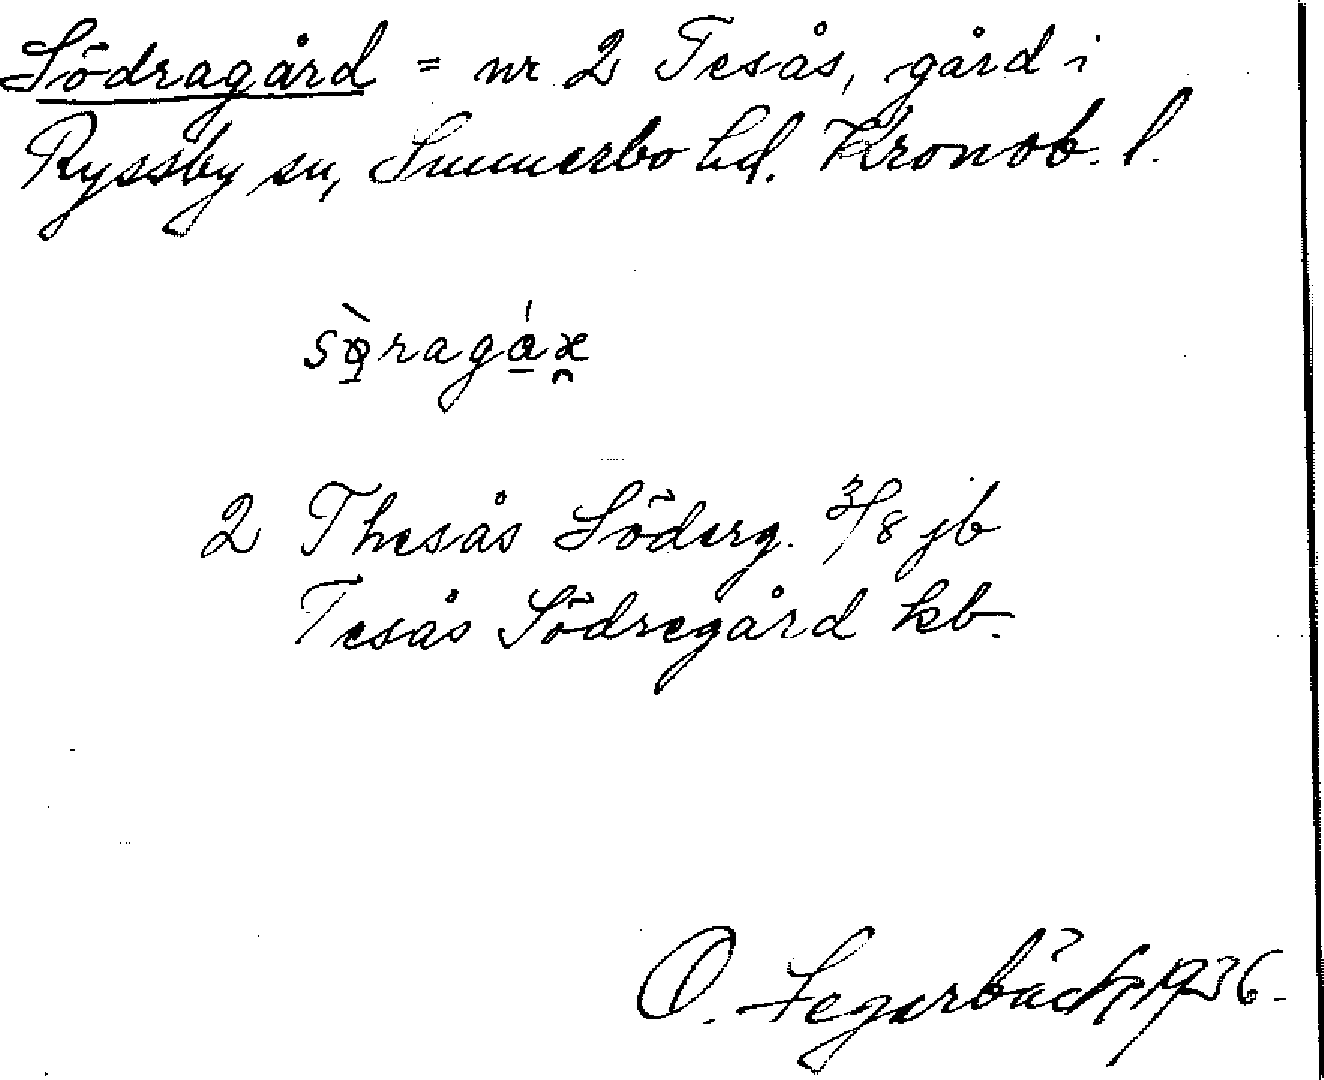 Södragård = nr 2 Tesås, gård i
Ryssby sn, Sunnerbo hd. Kronob. l.
2 Thesås Söderg. 3/8 jb
Tesås Södregård kb.
O. Fegerbäck 1936.